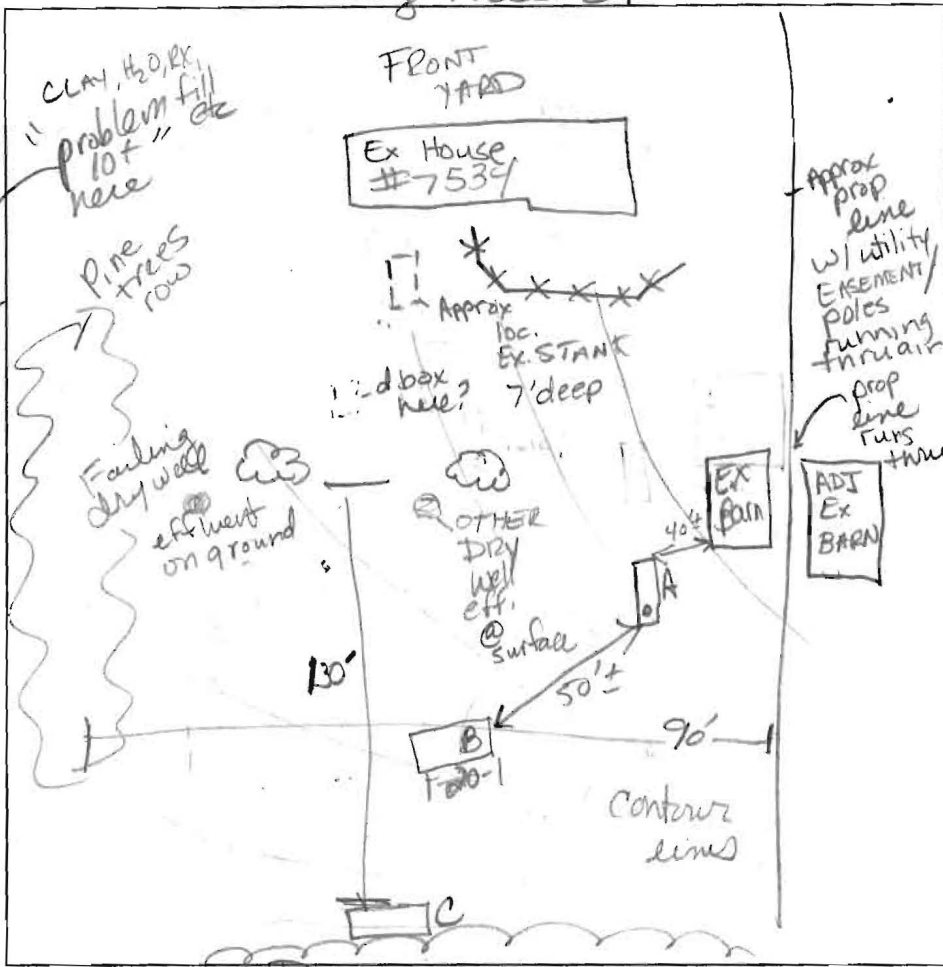 " CLAY, H2O, RX,
problem fill
10+ " etc
here
FRONT
YARD
Ex House
# 7534
Approx
prop
line
w/ utility
EASEMENT/
poles
running
thru air
prop
line
runs
thru
Pine
trees
row
Approx
loc.
Ex. STANK
7' deep
d box
here?
Failing
dry well
effluent
on ground
OTHER
DRY
well
eff.
@
surface
EX
Barn
ADJ
Ex
BARN
40'±
A
50'±
130'
B
90'
Contour
lines
C